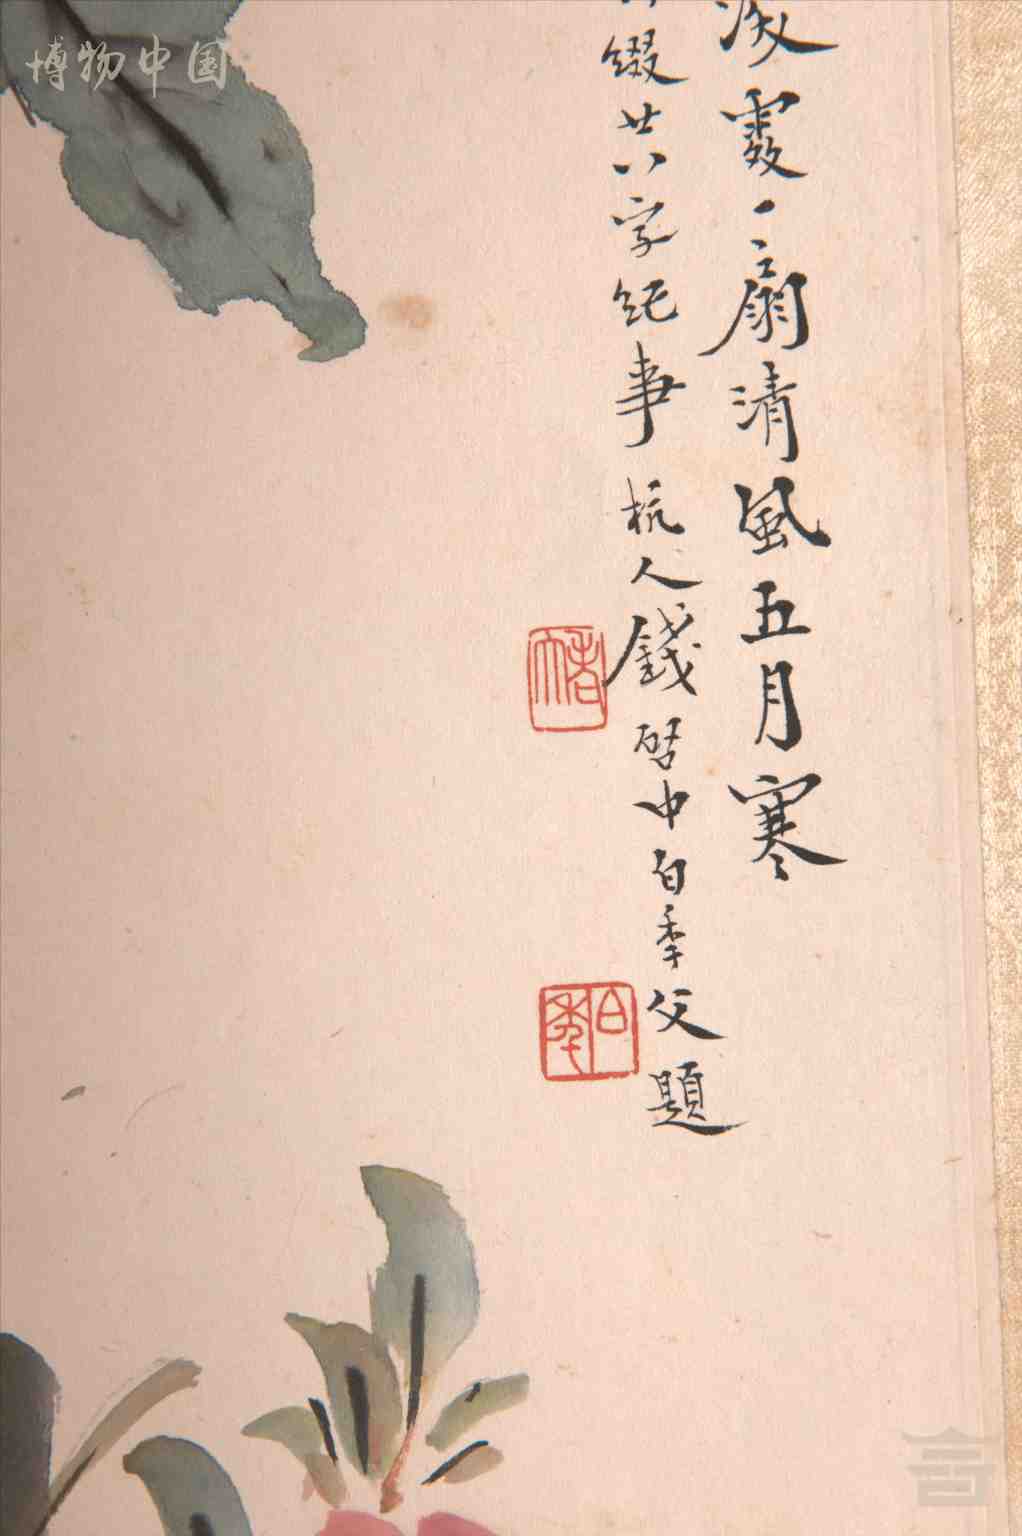 博物中国
霞一扇清風五月寒
綴廿八字紀事杭人錢啓中白季父題
白季